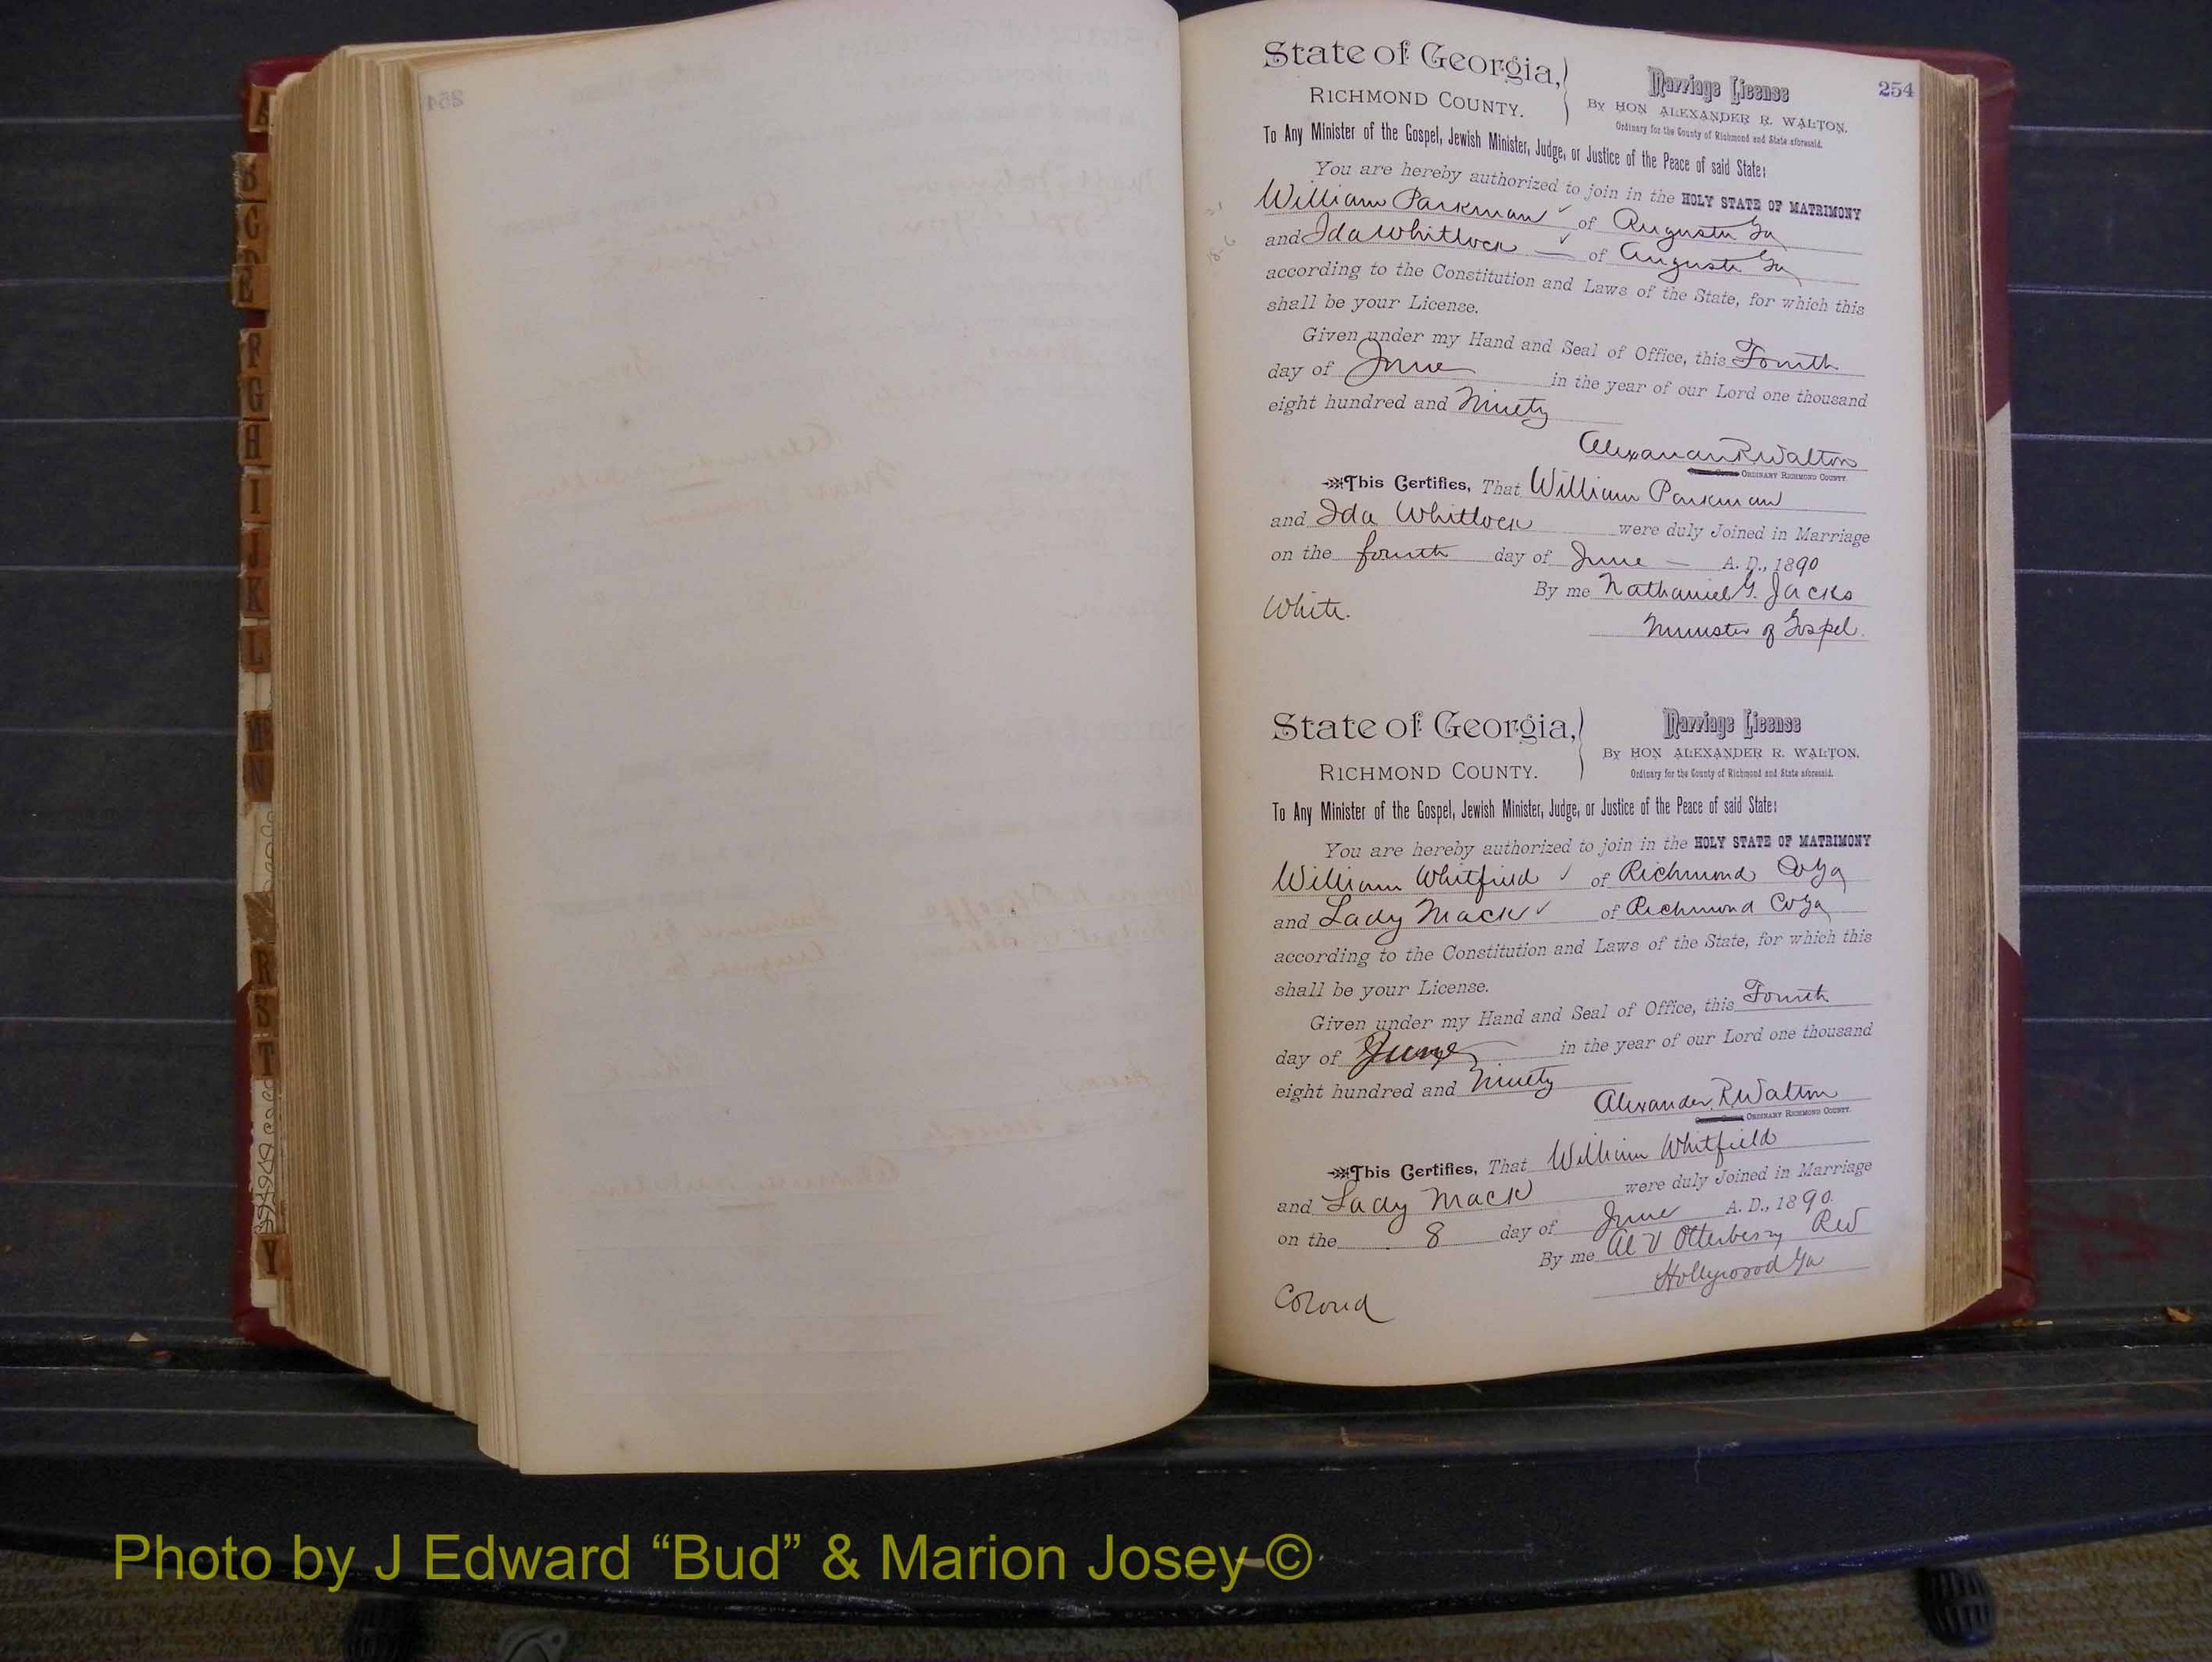 254
State of Georgia,
RICHMOND COUNTY.
Marriage License
By HON ALEXANDER R. WALTON,
Ordinary for the County of Richmond and State aforesaid.
To Any Minister of the Gospel, Jewish Minister, Judge, or Justice of the Peace of said State:
You are hereby authorized to join in the HOLY STATE OF MATRIMONY
William Parkman of Augusta Ga
and Ida Whitlock of Augusta Ga
according to the Constitution and Laws of the State, for which this
shall be your License.
Given under my Hand and Seal of Office, this Fourth
day of June in the year of our Lord one thousand
eight hundred and Ninety
Alexander R Walton
ORDINARY RICHMOND COUNTY.
This Certifies, That William Parkman
and Ida Whitlock were duly Joined in Marriage
on the fourth day of June A. D., 1890
By me Nathaniel G. Jacks
White. Minister of Gospel.
State of Georgia,
RICHMOND COUNTY.
Marriage License
By HON ALEXANDER R. WALTON,
Ordinary for the County of Richmond and State aforesaid.
To Any Minister of the Gospel, Jewish Minister, Judge, or Justice of the Peace of said State:
You are hereby authorized to join in the HOLY STATE OF MATRIMONY
William Whitfield of Richmond Co Ga
and Lady Mack of Richmond Co Ga
according to the Constitution and Laws of the State, for which this
shall be your License.
Given under my Hand and Seal of Office, this Fourth
day of June in the year of our Lord one thousand
eight hundred and Ninety
Alexander R Walton
ORDINARY RICHMOND COUNTY.
This Certifies, That William Whitfield
and Lady Mack were duly Joined in Marriage
on the 8 day of June A. D., 1890
By me Al V Otterbesry Rev
Hollywood Ga
Colored
A
B
C
F
G
H
I
J
K
L
M
N
R
S
T
Y
Photo by J Edward “Bud” & Marion Josey ©